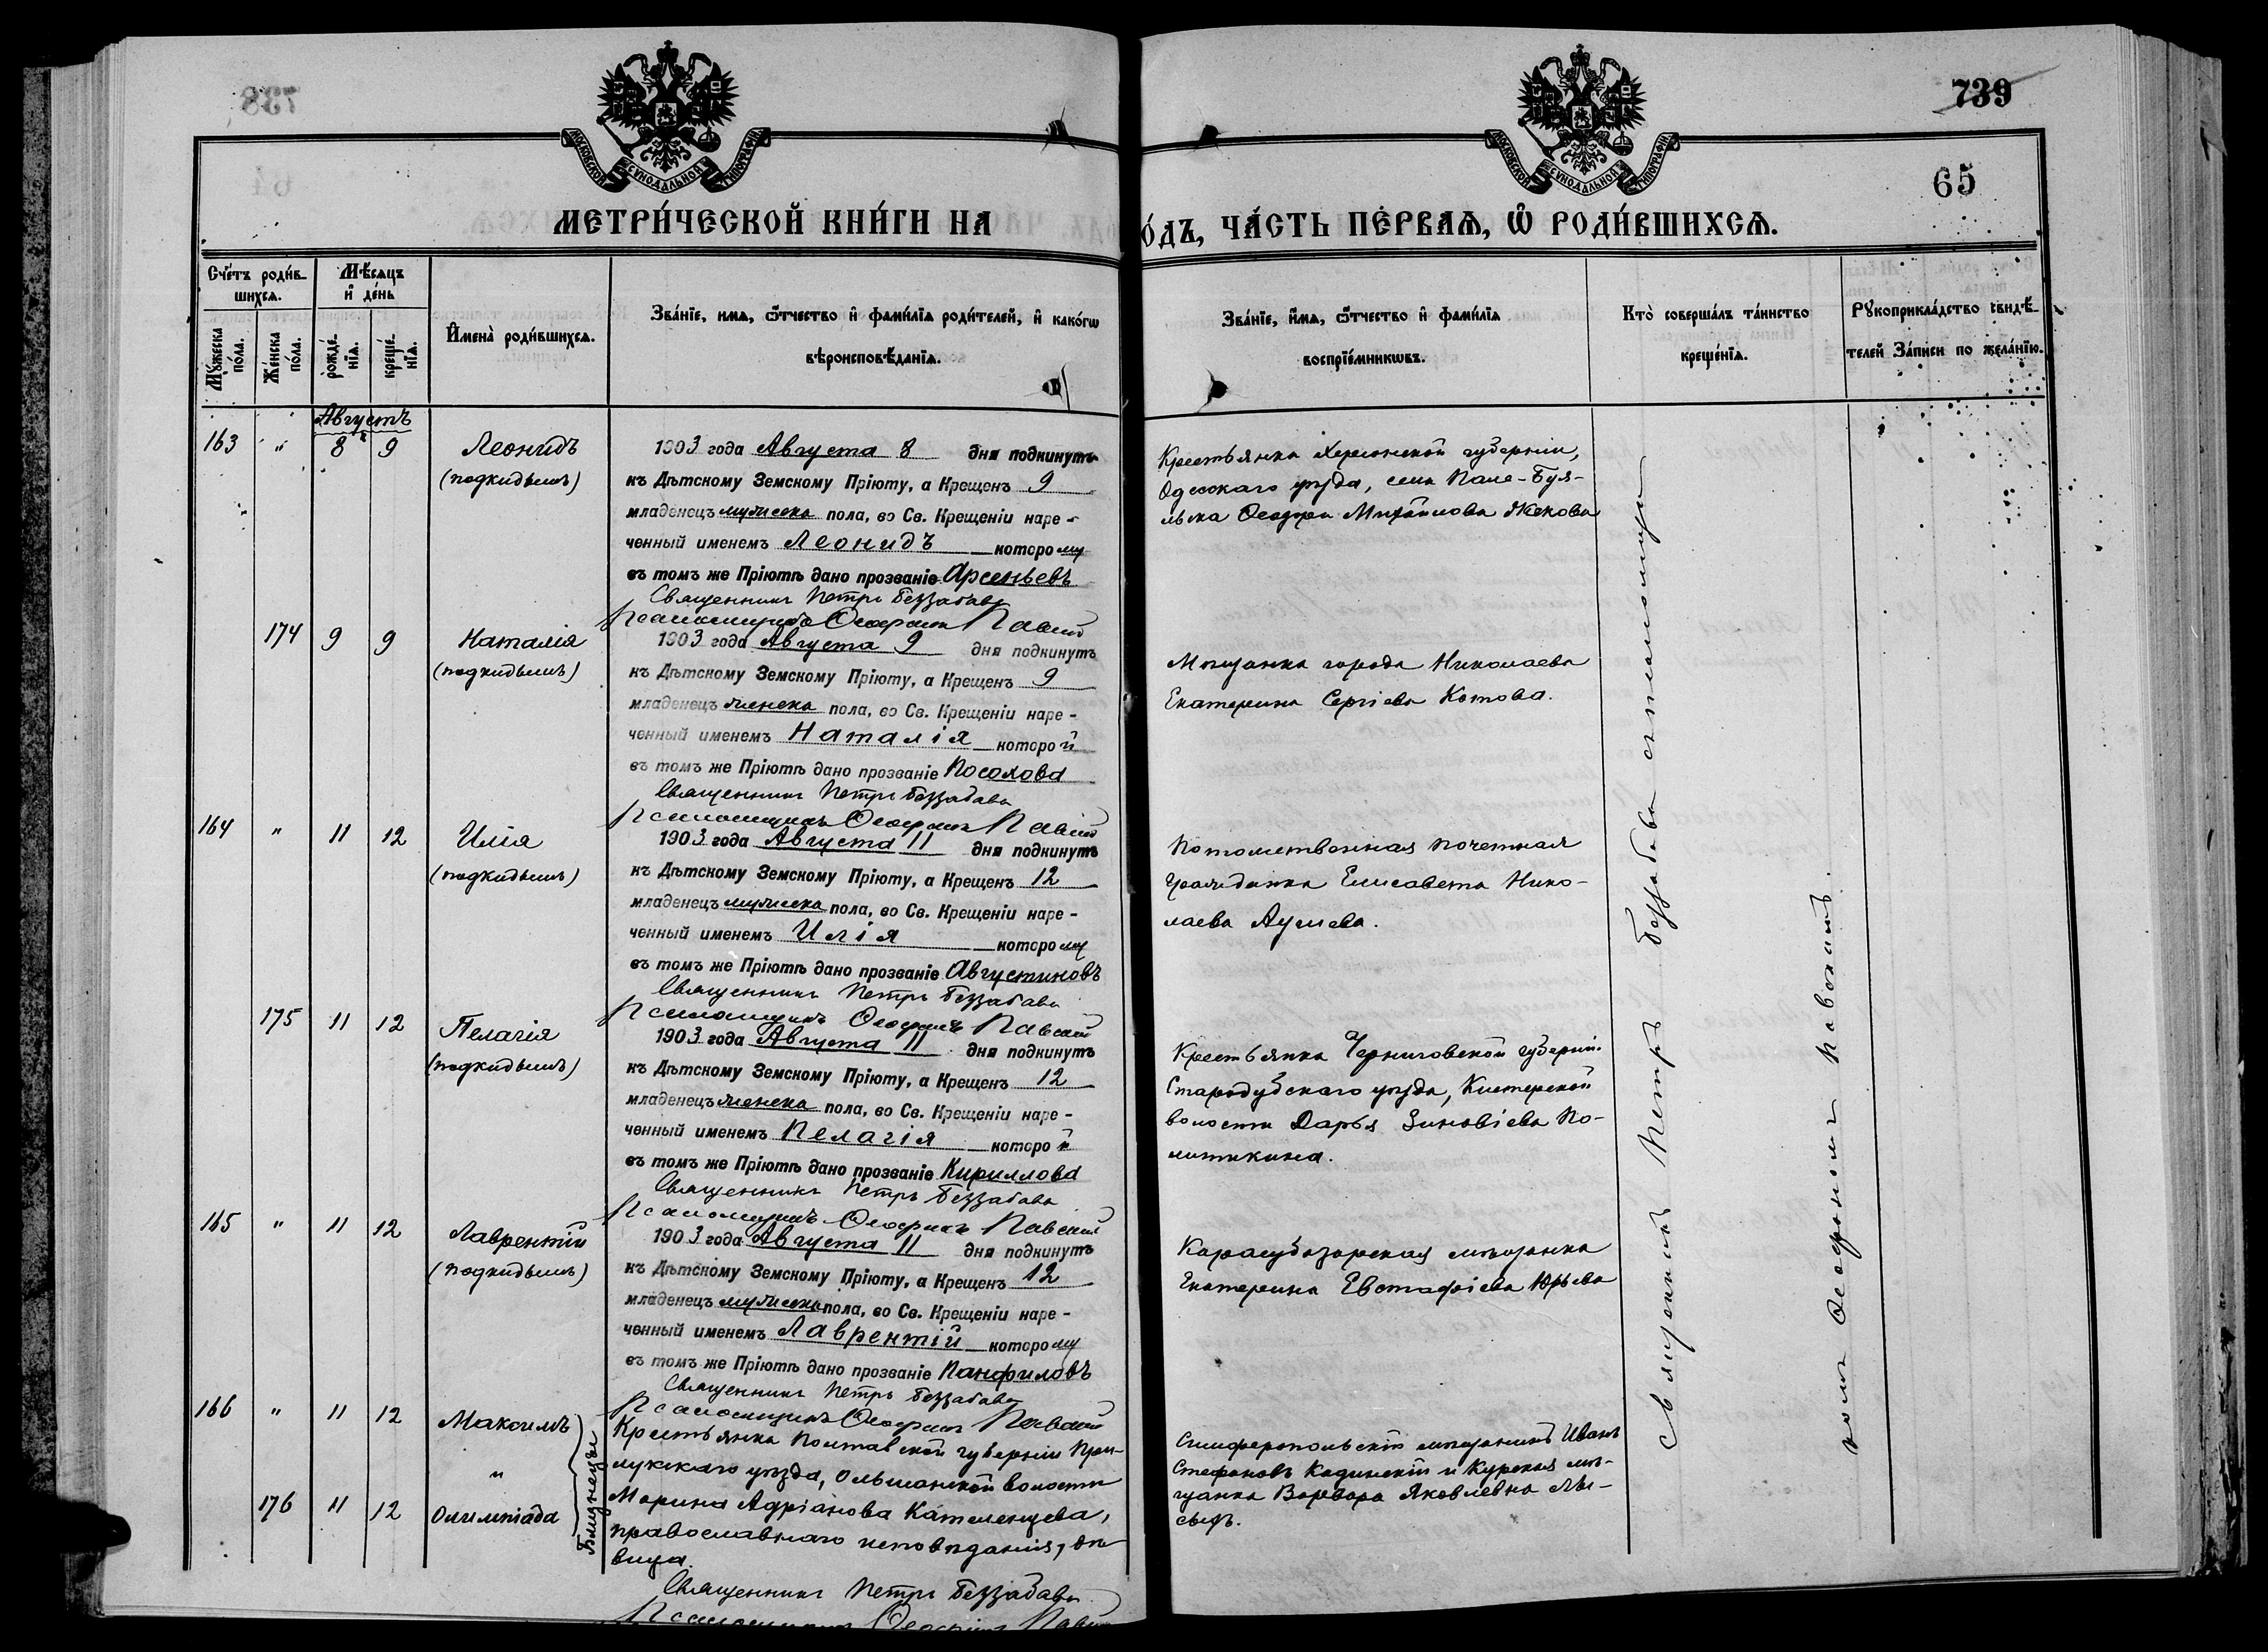 738
739
65
МОСКОВСКОЙ СѴНОДАЛЬНОЙ ТИПОГРАФІИ
МОСКОВСКОЙ СѴНОДАЛЬНОЙ ТИПОГРАФІИ
МЕТРИ́ЧЕСКОЙ КНИ́ГИ НА
О́ДЪ, ЧА́СТЬ ПЕ́РВАѦ, Ѿ РОДИ́ВШИХСѦ.
Сче́тъ роди́в-
шихсѧ.
Мѣ́сѧцъ
и де́нь
Мꙋжеска по́ла.
Же́нска по́ла.
рожде́нїѧ.
креще́нїѧ.
Имена̀ роди́вшихсѧ.
Зва́нїе, имѧ, ѻтчество и фами́лїѧ роди́телей, и како́гѡ
вѣроисповѣ́данїѧ.
Зва́нїе, и́мѧ, ѻтчество и фами́лїѧ
воспрїе́мникѡвъ.
Кто̀ соверша́лъ та́инство
креще́нїѧ.
Рꙋкоприкла́дство свидѣ́-
телей за́писи по жела́нїю.
Августъ
163 " 8 9 Леонидъ
(подкидышъ)
1903 года Августа 8 дня подкинутъ
къ Дѣтскому Земскому Пріюту, а Крещенъ 9
младенецъ мужеска пола, во Св. Крещеніи наре-
ченный именемъ Леонидъ которому
въ томъ же Пріютѣ дано прозваніе Арсеньевъ
Священникъ Петръ Беззабава
Псаломщикъ
Крестьянка Херсонской губерніи,
Одесскаго уѣзда, села
Михайлова
174 9 9 Наталія
(подкидышъ)
1903 года Августа 9 дня подкинутъ
къ Дѣтскому Земскому Пріюту, а Крещенъ 9
младенецъ женска пола, во Св. Крещеніи наре-
ченный именемъ Наталія которой
въ томъ же Пріютѣ дано прозваніе Посохова
Священникъ Петръ Беззабава
Псаломщикъ
Мѣщанка города Николаева
Екатерина Сергіева Котова.
164 " 11 12 Илія
(подкидышъ)
1903 года Августа 11 дня подкинутъ
къ Дѣтскому Земскому Пріюту, а Крещенъ 12
младенецъ мужеска пола, во Св. Крещеніи наре-
ченный именемъ Илія которому
въ томъ же Пріютѣ дано прозваніе Августиновъ
Священникъ Петръ Беззабава
Псаломщикъ
Потомственная почетная
гражданка Елисавета Нико-
лаева
175 11 12 Пелагія
(подкидышъ)
1903 года Августа 11 дня подкинутъ
къ Дѣтскому Земскому Пріюту, а Крещенъ 12
младенецъ женска пола, во Св. Крещеніи наре-
ченный именемъ Пелагія которой
въ томъ же Пріютѣ дано прозваніе Кириллова
Священникъ Петръ Беззабава
Псаломщикъ
Крестьянка Черниговской губерніи
Стародубскаго уѣзда, Кистерской
волости Дарья Зиновіева По-
165 " 11 12 Лаврентій
(подкидышъ)
1903 года Августа 11 дня подкинутъ
къ Дѣтскому Земскому Пріюту, а Крещенъ 12
младенецъ мужеска пола, во Св. Крещеніи наре-
ченный именемъ Лаврентій которому
въ томъ же Пріютѣ дано прозваніе Панфиловъ
Священникъ Петръ Беззабава
Псаломщикъ
Карасубазарская мѣщанка
Екатерина Евстафіева Юрьева
166 " 11 12 Максимъ
"
176 11 12 Олимпіада
Близнецы
Крестьянка Полтавской губерніи При-
лукскаго уѣзда, Ольшанской волости
Марина Адріанова
православнаго исповѣданія, дѣ-
вица.
Священникъ Петръ Беззабава
Псаломщикъ
Симферопольскій мѣщанинъ Иванъ
Стефановъ Кадинскій и Курская мѣ-
щанка Варвара Яковлевна
Священникъ Петръ Беззабава